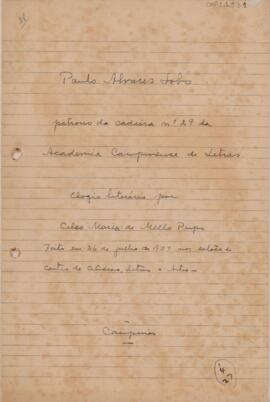 Paulo Alvares Lobo
patrono da cadeira nº 29 da
Academia Campinense de Letras
elogio literário por
Celso Maria de Mello Pupo
Feito em 26 de julho de nos salões do
Centro de Ciências, Letras e Artes
Campinas